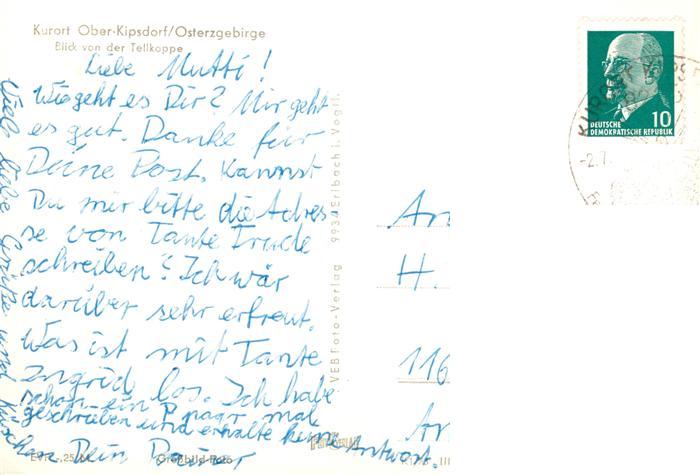 Kurort Ober-Kipsdorf/Osterzgebirge
Blick von der Tellkoppe
Liebe Mutti!
Wie geht es Dir? Mir geht
es gut. Danke für
Deine Post. Kannst
Du mir bitte die Adres-
se von Tante Trude
schreiben? Ich wär
darüber sehr erfreut.
Was ist mit Tante
Ingrid los. Ich habe
schon ein paar mal
geschrieben und erhalte keine Antwort.
Dein
Viele liebe Grüße und
EVP -,25 M
Großbild-Foto
VEB Foto-Verlag 9934 Erlbach i. Vogtl.
10
DEUTSCHE
DEMOKRATISCHE REPUBLIK
KURORT KIPS
-2.7.
An
H.
116